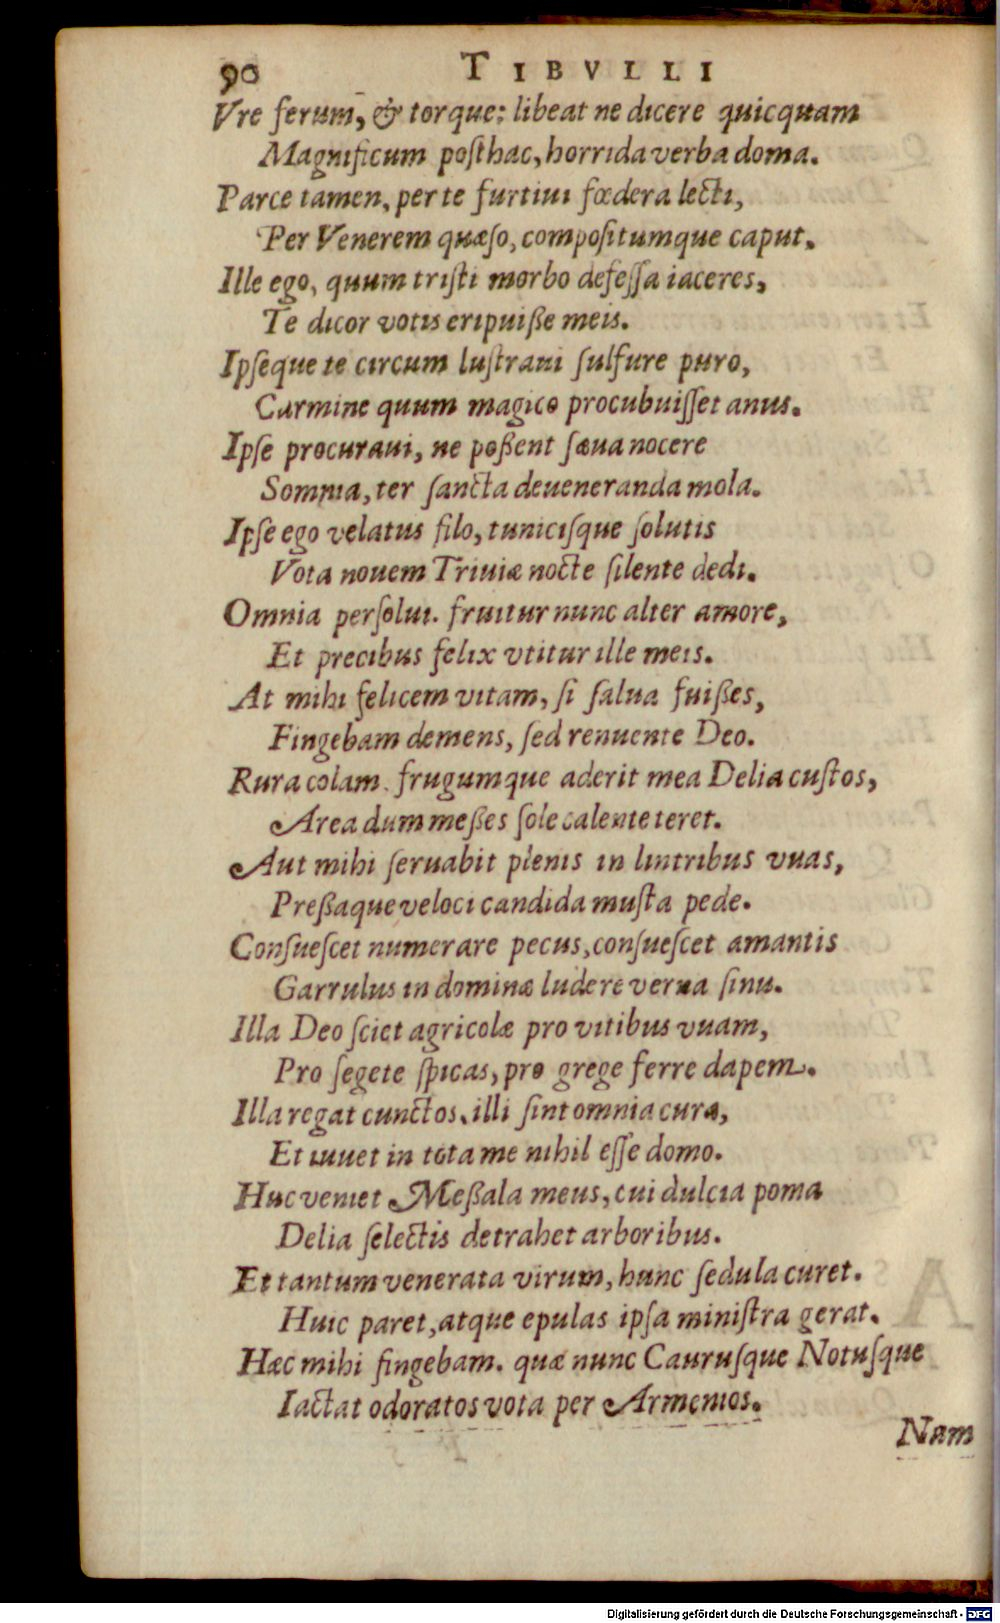 90 TIBVLLI
Vre ferum, & torque: libeat ne dicere quicquam
Magnificum posthac, horrida verba doma.
Parce tamen, per te furtiui fœdera lecti,
Per Venerem quæso, compositumque caput.
Ille ego, quum tristi morbo defessa iaceres,
Te dicor votis eripuiße meis.
Ipseque te circum lustraui sulfure puro,
Carmine quum magico procubuisset anus.
Ipse procuraui, ne poßent sæua nocere
Somnia, ter sancta deueneranda mola.
Ipse ego velatus filo, tunicisque solutis
Vota nouem Triuiæ nocte silente dedi.
Omnia persolui. fruitur nunc alter amore,
Et precibus felix vtitur ille meis.
At mihi felicem vitam, si salua fuißes,
Fingebam demens, sed renuente Deo.
Rura colam. frugumque aderit mea Delia custos,
Area dum meßes sole calente teret.
Aut mihi seruabit plenis in lintribus vuas,
Preßaque veloci candida musta pede.
Consuescet numerare pecus, consuescet amantis
Garrulus in dominæ ludere verna sinu.
Illa Deo sciet agricolæ pro vitibus vuam,
Pro segete spicas, pro grege ferre dapem.
Illa regat cunctos, illi sint omnia cura,
Et iuuet in tota me nihil esse domo.
Huc veniet Meßala meus, cui dulcia poma
Delia selectis detrahet arboribus.
Et tantum venerata virum, hunc sedula curet.
Huic paret, atque epulas ipsa ministra gerat.
Hæc mihi fingebam. quæ nunc Caurusque Notusque
Iactat odoratos vota per Armenios.
Nam
Digitalisierung gefördert durch die Deutsche Forschungsgemeinschaft - DFG